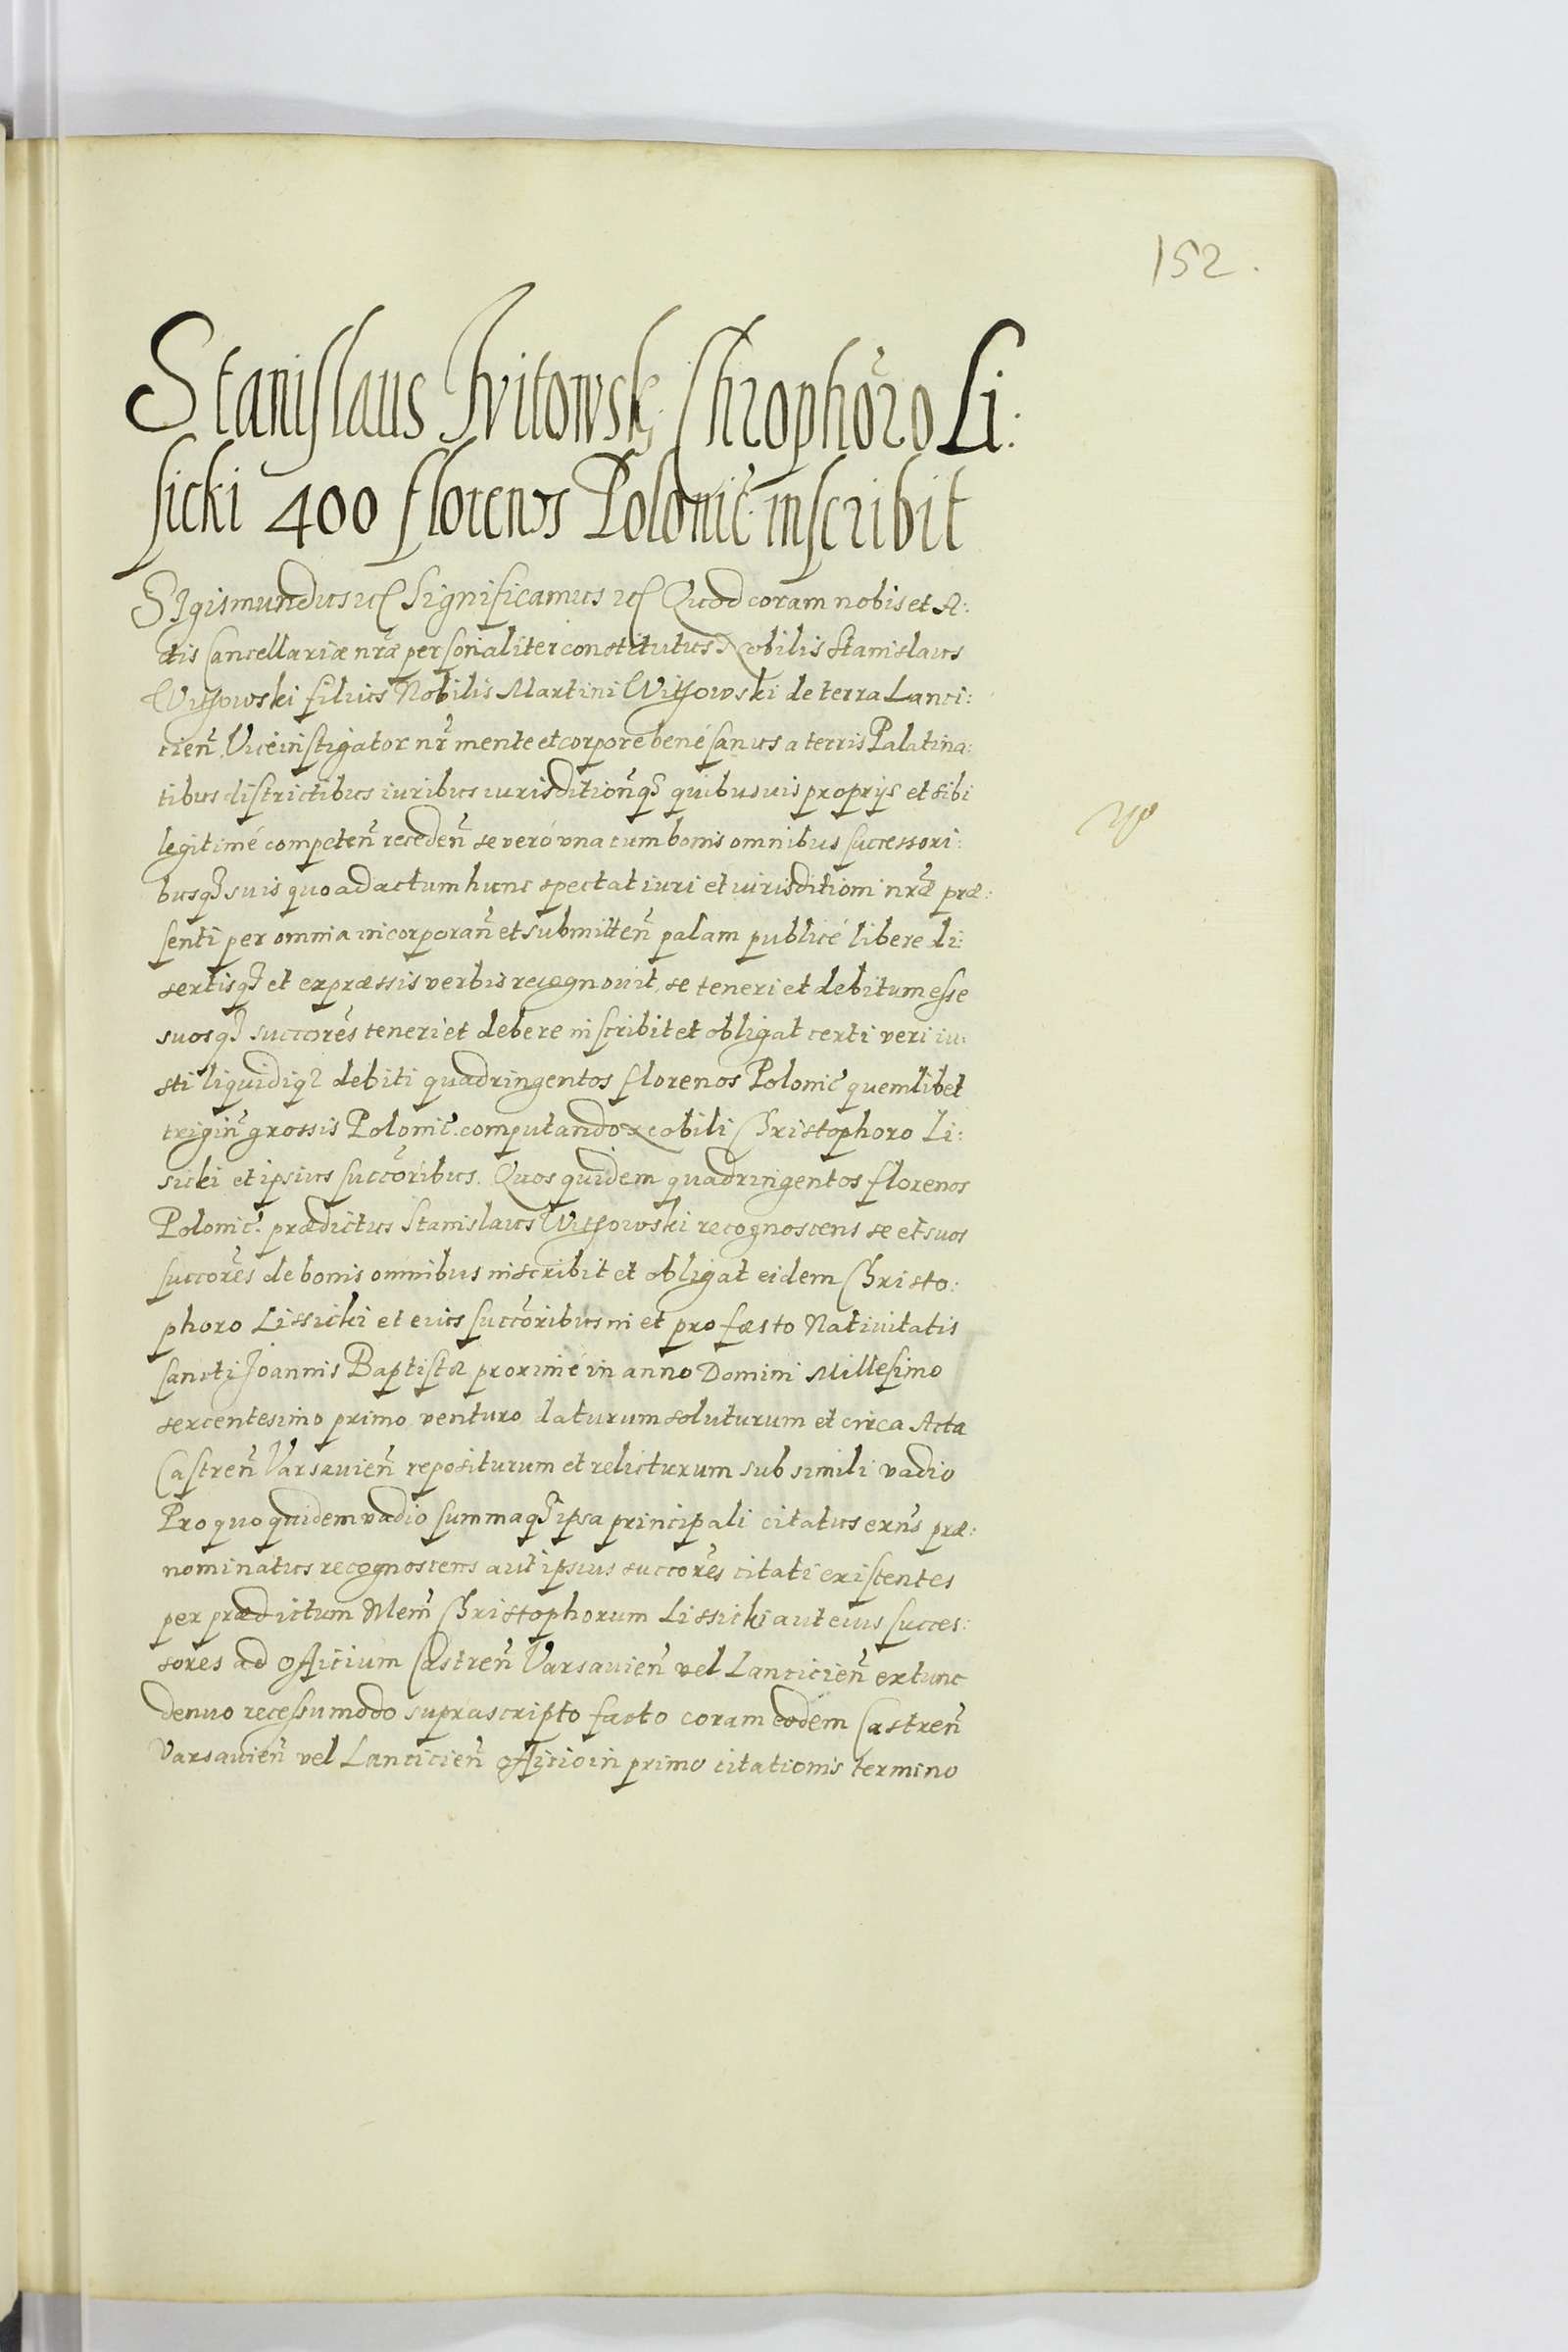 152.
Stanislaus Witowsk Chrophoro Li:
sicki 400 florenos Polonic inscribit
Sigismundus etc Significamus etc Quod coram nobis et A:
ctis Cancellariæ nræ personaliter constitutus Nobilis Stanislaus
Witßowski filius Nobilis Martini Witßowski de terra Lanci:
cien̄. Viceinstigator nr̄ mente et corpore bené sanus a terris Palatina:
tibus districtibus iuribus iurisdition̄q3 quibusuis proprijs et sibi
legitimé competen̄ receden̄ se veró vna cum bonis omnibus successori:
busq3 suis quo ad actum hunc spectat iuri et iurisditioni nræ præ:
senti per omnia incorporan̄ et submitten̄ palam publicé libere di:
sertisq3 et expræssis verbis recognouit, se teneri et debitum esse
suosq3 succores teneri et debere inscribit et obligat certi veri iu:
sti liquidiq3 debiti quadringentos florenos Polonic̄ quemlibet
trigin̄ grossis Polonic̄. computando Nobili Christophoro Li:
sicki et ipsius succoribus. Quos quidem quadringentos florenos
Polonic̄. prædictus Stanislaus Witßowski recognoscens se et suos
succores de bonis omnibus inscribit et obligat eidem Christo:
phoro Lissicki et eius succoribus in et pro fæsto Natiuitatis
sancti Joannis Baptistæ proximé in anno Domini Millesimo
sexcentesimo primo venturo daturum soluturum et circa Acta
Castren̄ Varsauien̄ repositurum et relicturum sub simili vadio
Pro quo quidem vadio summaq3 ipsa principali citatus exn̄s præ:
nominatus recognoscens aut ipsius succores citati existentes
per prædictum Nlem̄ Christophorum Lissicki aut eius succes:
sores ad officium Castren̄ Varsauien̄ vel Lancicien̄ extunc
denuo recessu modo suprascripto facto coram eodem Castren̄
Varsauien̄ vel Lancicien̄ officio in primo citationis termino